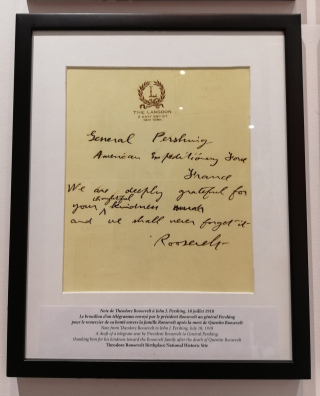 L
THE LANGDON
2 EAST 56th ST
NEW YORK
General Pershing
American Expeditionary Force
France
We are deeply grateful for
thoughtful
your kindness
and we shall never forget it
Roosevelt
Note de Theodore Roosevelt à John J. Pershing, 18 juillet 1918
Le brouillon d'un télégramme envoyé par le président Roosevelt au général Pershing
pour le remercier de sa bonté envers la famille Roosevelt après la mort de Quentin Roosevelt
Note from Theodore Roosevelt to John J. Pershing, July 18, 1918
A draft of a telegram sent by President Roosevelt to General Pershing
thanking him for his kindness toward the Roosevelt family after the death of Quentin Roosevelt
Theodore Roosevelt Birthplace National Historic Site